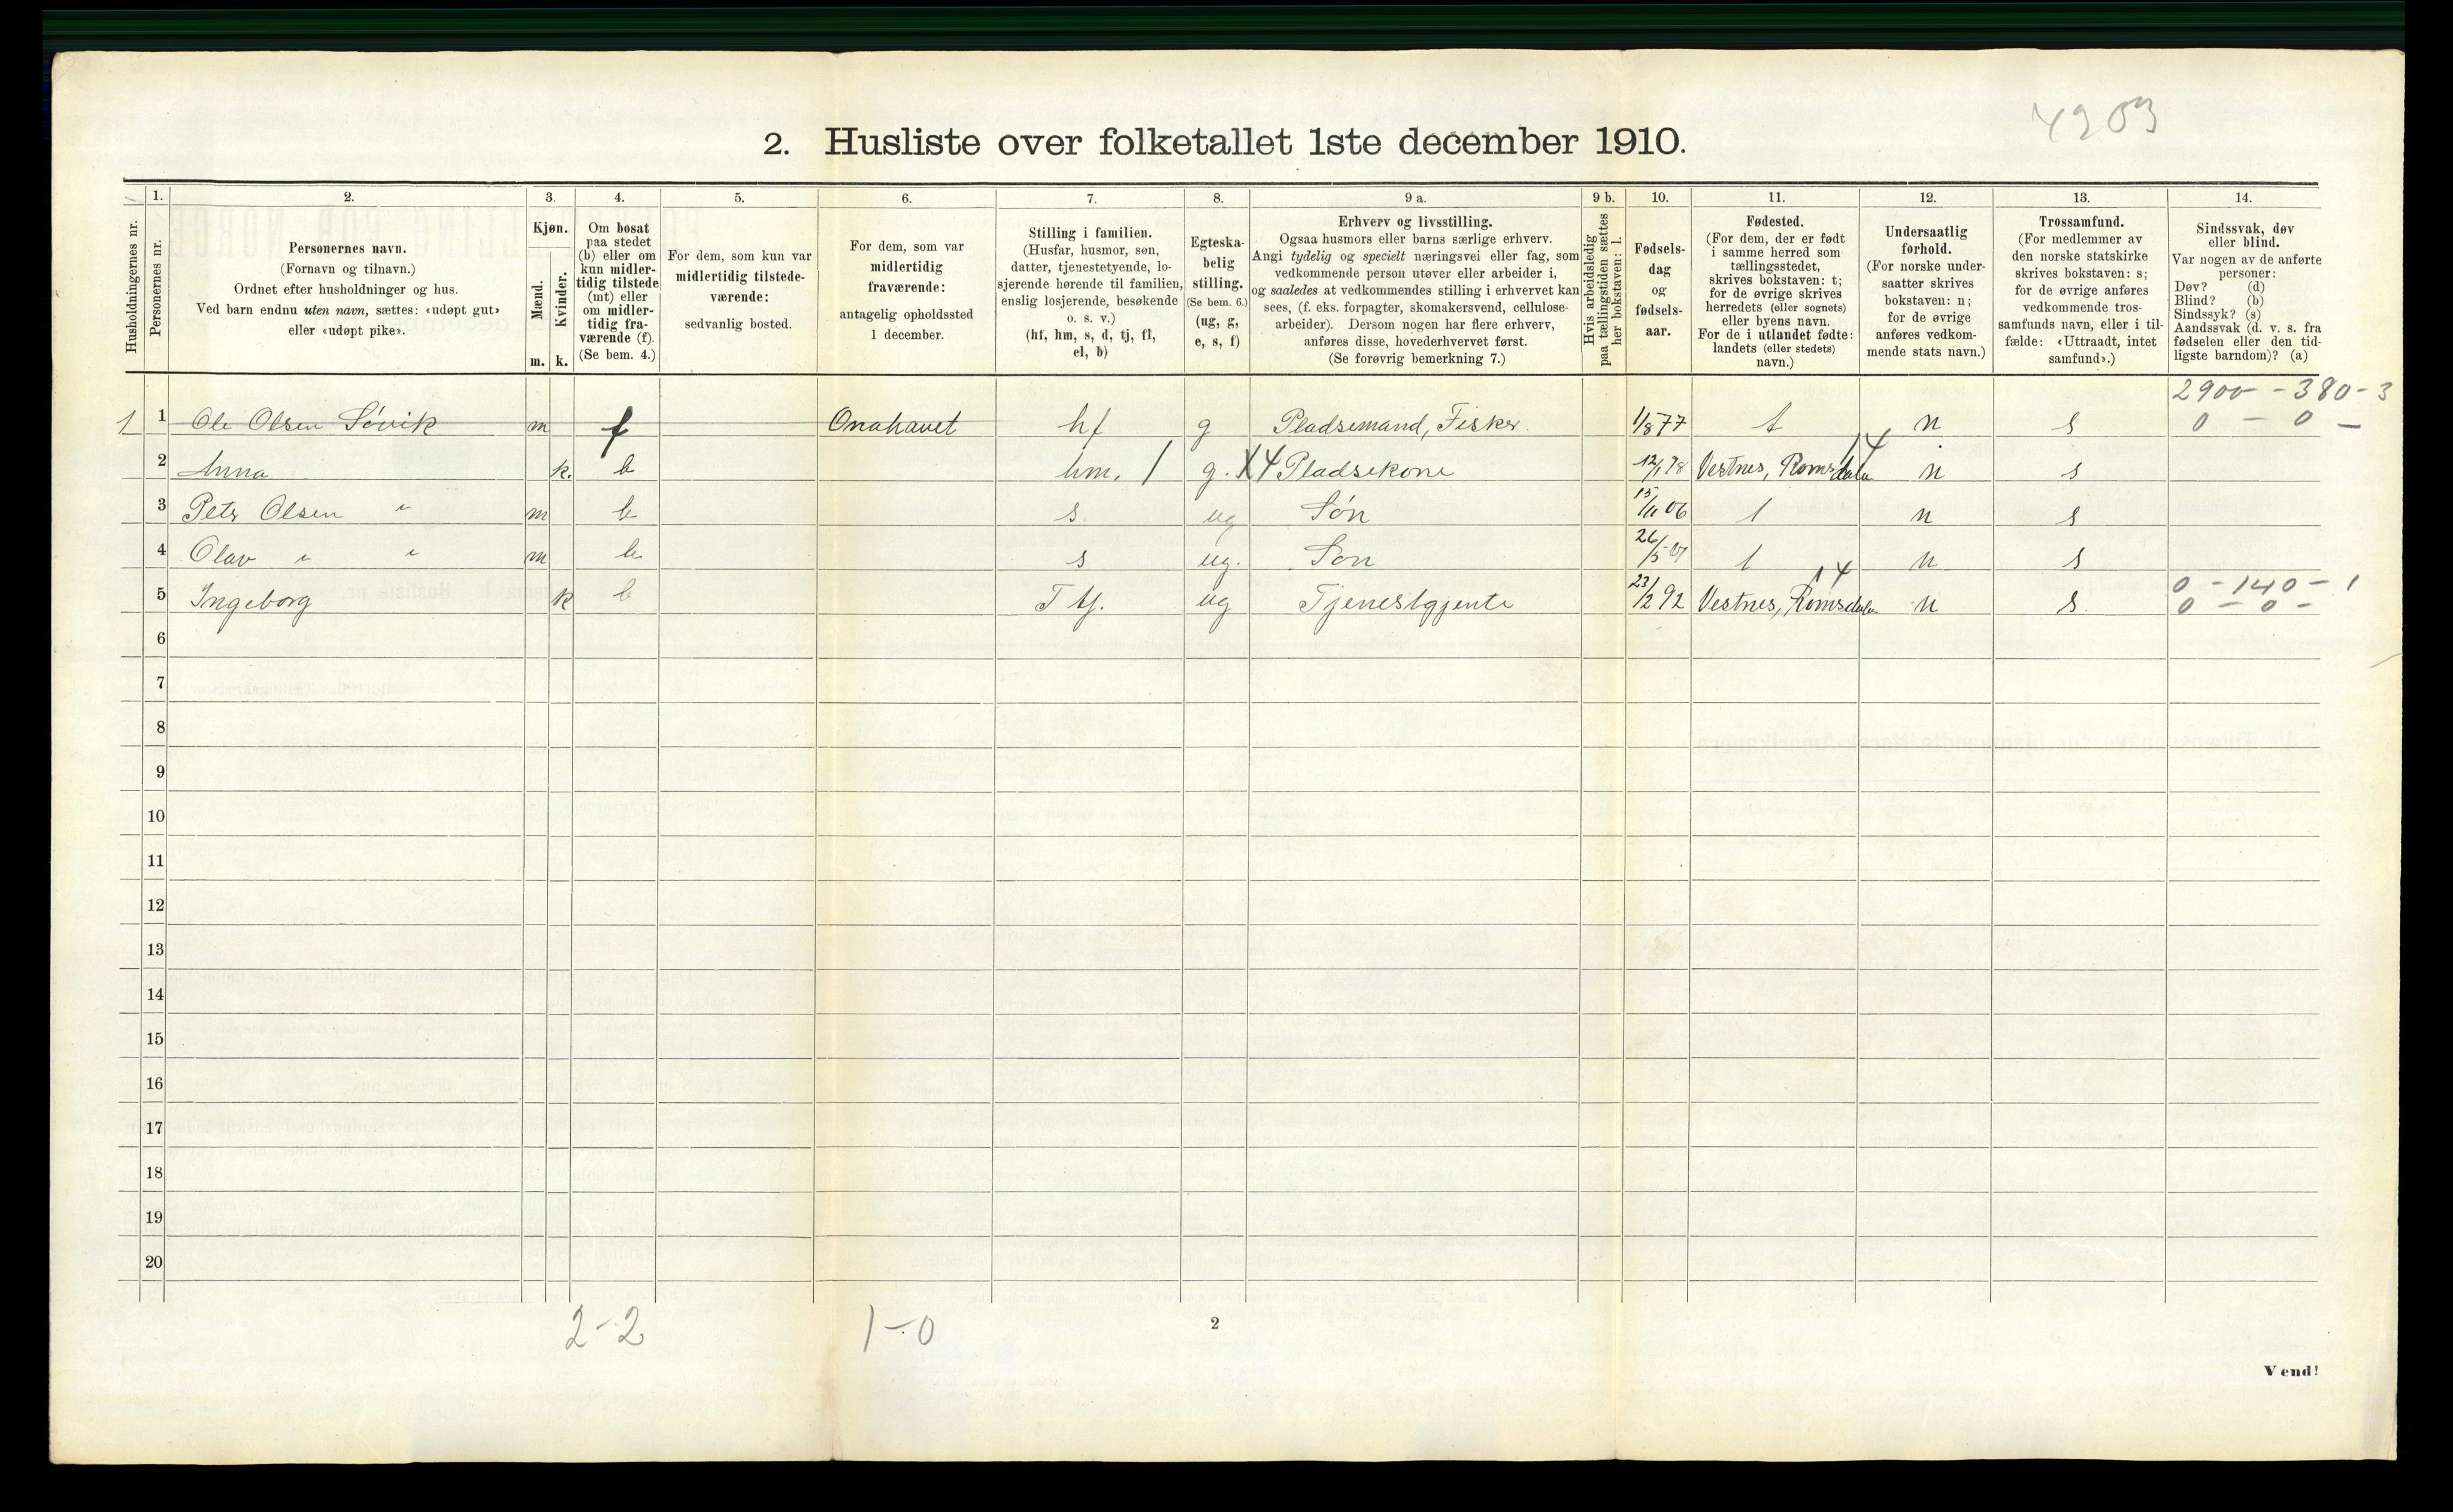 4203
2. Husliste over folketallet 1ste december 1910.
Husholdningernes nr.
1.
Personernes nr.
2.
Personernes navn.
(Fornavn og tilnavn.)
Ordnet efter husholdninger og hus.
Ved barn endnu uten navn, sættes: «udøpt gut»
eller «udøpt pike».
3.
Kjøn.
Mænd.
Kvinder.
m. k.
4.
Om bosat
paa stedet
(b) eller om
kun midler-
tidig tilstede
(mt) eller
om midler-
tidig fra-
værende (f).
(Se bem. 4.)
5.
For dem, som kun var
midlertidig tilstede-
værende:
sedvanlig bosted.
6.
For dem, som var
midlertidig
fraværende:
antagelig opholdssted
1 december.
7.
Stilling i familien.
(Husfar, husmor, søn,
datter, tjenestetyende, lo-
sjerende hørende til familien,
enslig losjerende, besøkende
o. s. v.)
(hf, hm, s, d, tj, fl,
el, b)
8.
Egteska-
belig
stilling.
(Se bem. 6.)
(ug, g,
e, s, f)
9 a.
Erhverv og livsstilling.
Ogsaa husmors eller barns særlige erhverv.
Angi tydelig og specielt næringsvei eller fag, som
vedkommende person utøver eller arbeider i,
og saaledes at vedkommendes stilling i erhvervet kan
sees, (f. eks. forpagter, skomakersvend, cellulose-
arbeider). Dersom nogen har flere erhverv,
anføres disse, hovederhvervet først.
(Se forøvrig bemerkning 7.)
9 b.
Hvis arbeidsledig
paa tællingstiden sættes
her bokstaven: l.
10.
Fødsels-
dag
og
fødsels-
aar.
11.
Fødested.
(For dem, der er født
i samme herred som
tællingsstedet,
skrives bokstaven: t;
for de øvrige skrives
herredets (eller sognets)
eller byens navn.
For de i utlandet fødte:
landets (eller stedets)
navn.)
12.
Undersaatlig
forhold.
(For norske under-
saatter skrives
bokstaven: n;
for de øvrige
anføres vedkom-
mende stats navn.)
13.
Trossamfund.
(For medlemmer av
den norske statskirke
skrives bokstaven: s;
for de øvrige anføres
vedkommende tros-
samfunds navn, eller i til-
fælde: «Uttraadt, intet
samfund».)
14.
Sindssvak, døv
eller blind.
Var nogen av de anførte
personer:
Døv? (d)
Blind? (b)
Sindssyk? (s)
Aandssvak (d. v. s. fra
fødselen eller den tid-
ligste barndom)? (a)
2900 - 380 - 3
1 1 Ole Olsen Søvik m f Onahavet hf g Pladsemand, Fisker. 1/8 77 t n s 0 - 0 -
14
2 Anna k. b hm. 1 g. X4 Pladsekone 12/1 78 Vestnes, Romsdalen n s
3 Petr Olsen " m b s ug Søn 15/11 06 t n s
4 Olav " " m b s ug. Søn 26/5 07 t n s
14 0 - 140 - 1
5 Ingeborg k b T tj. ug Tjenestgjente 23/2 92 Vestnes, Romsdalen n s 0 - 0 -
6
7
8
9
10
11
12
13
14
15
16
17
18
19
20
2-2 1-0 2
Vend!